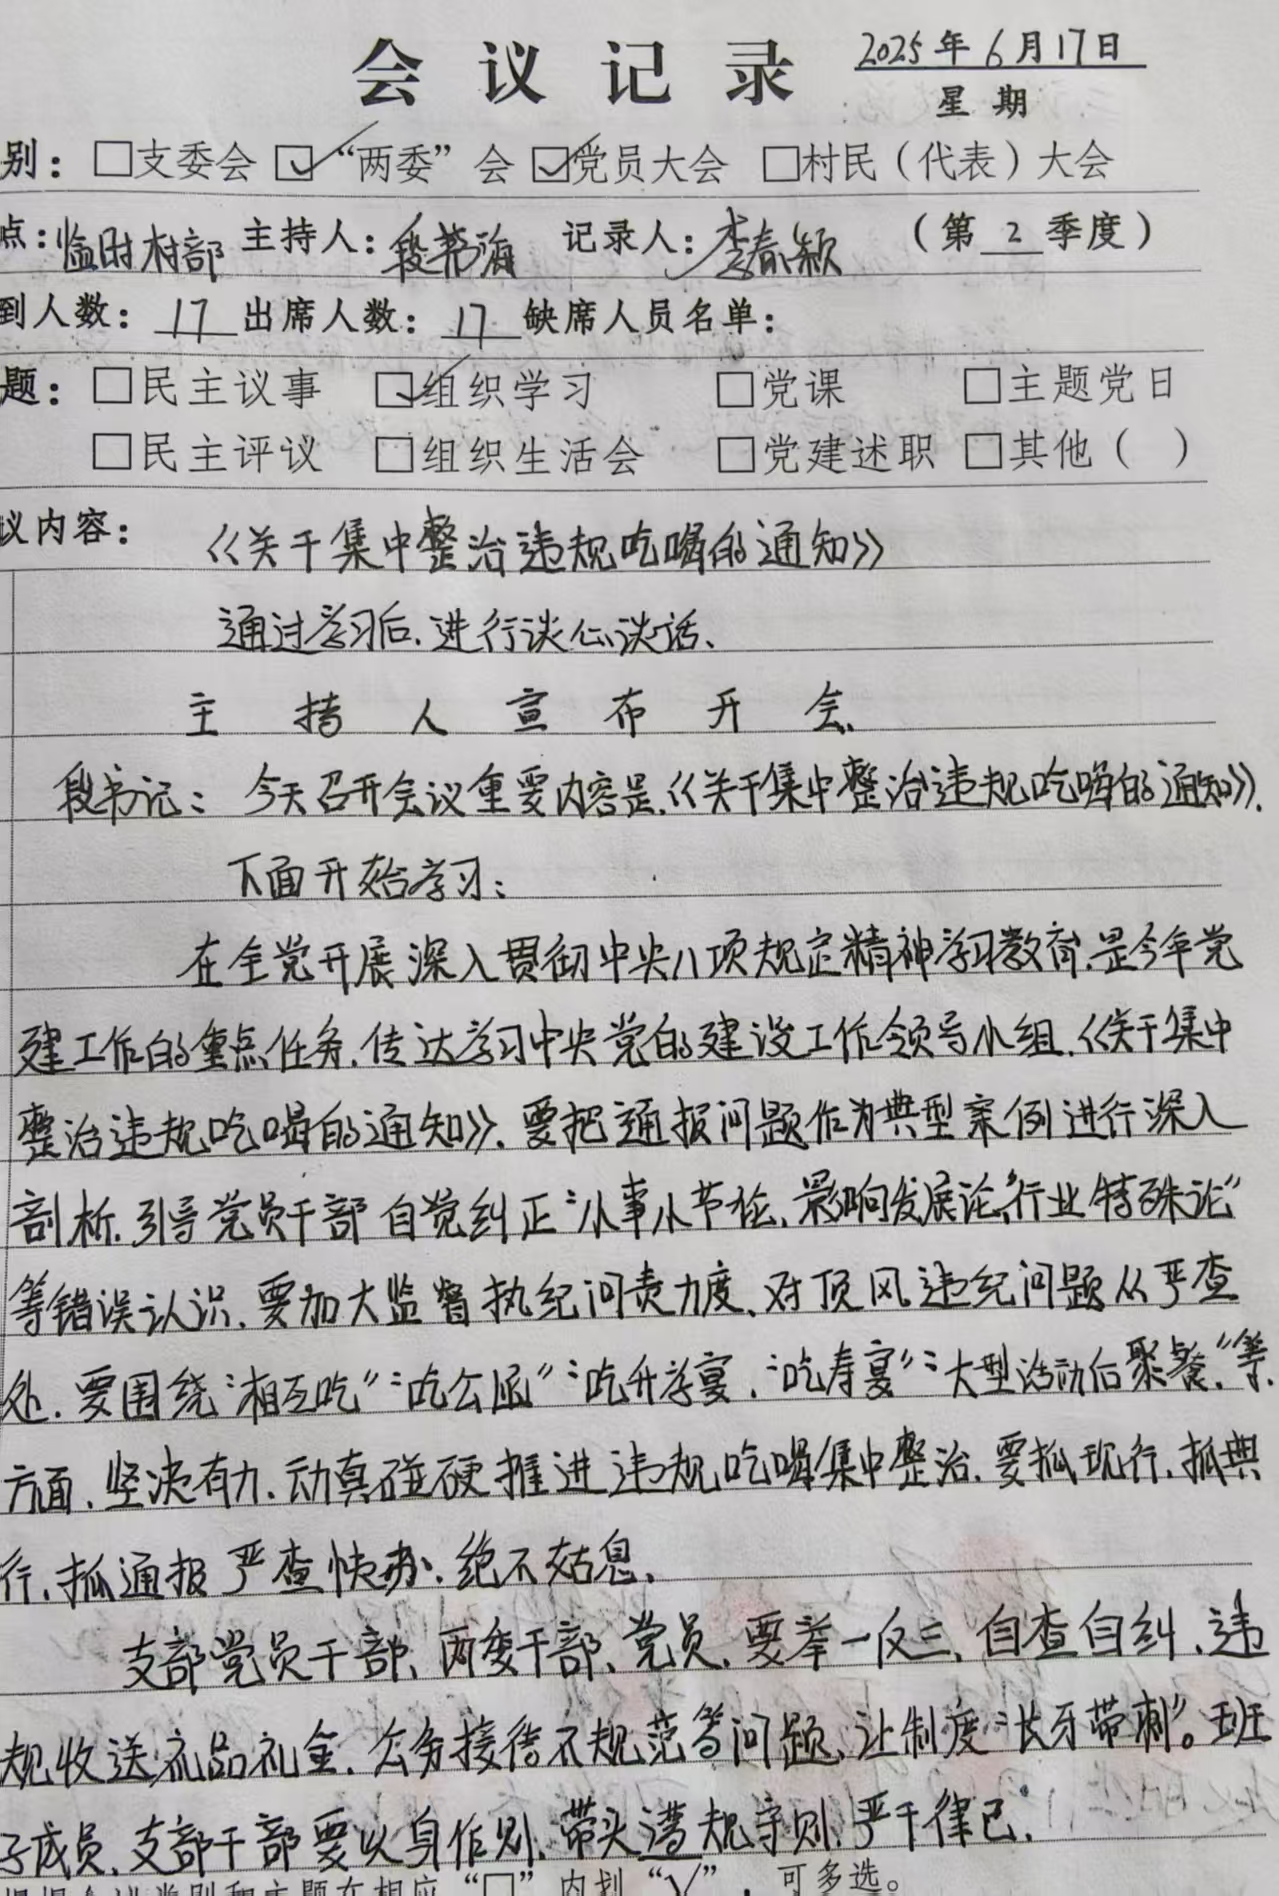 会议记录 2025年6月17日
星期
别：□支委会 ☑“两委”会 ☑党员大会 □村民（代表）大会
点：临时村部 主持人：段书海 记录人：李春颖 （第2季度）
到人数：17 出席人数：17 缺席人员名单：
题：□民主议事 ☑组织学习 □党课 □主题党日
□民主评议 □组织生活会 □党建述职 □其他（ ）
议内容：《关于集中整治违规吃喝的通知》
通过学习后.进行谈心谈话、
主持人宣布开会.
段书记：今天召开会议重要内容是.《关于集中整治违规吃喝的通知》.
下面开始学习：
在全党开展深入贯彻中央八项规定精神学习教育.是今年党
建工作的重点任务.传达学习中央党的建设工作领导小组.《关于集中
整治违规吃喝的通知》.要把通报问题作为典型案例进行深入
剖析.引导党员干部自觉纠正“小事小节论、影响发展论”“行业特殊论”
等错误认识.要加大监督执纪问责力度、对顶风违纪问题从严查
处.要围绕“相互吃”“吃公函”“吃升学宴.“吃寿宴”“大型活动后聚餐”等.
方面.坚决有力.动真碰硬推进违规吃喝集中整治.要抓现行.抓典
行.抓通报严查快办.绝不姑息.
支部党员干部、两委干部、党员.要举一反三、自查自纠、违
规收送礼品礼金.公务接待不规范等问题、让制度“长牙带刺”。班
子成员.支部干部要以身作则.带头遵规守则.严于律己.
内划“√”，可多选。